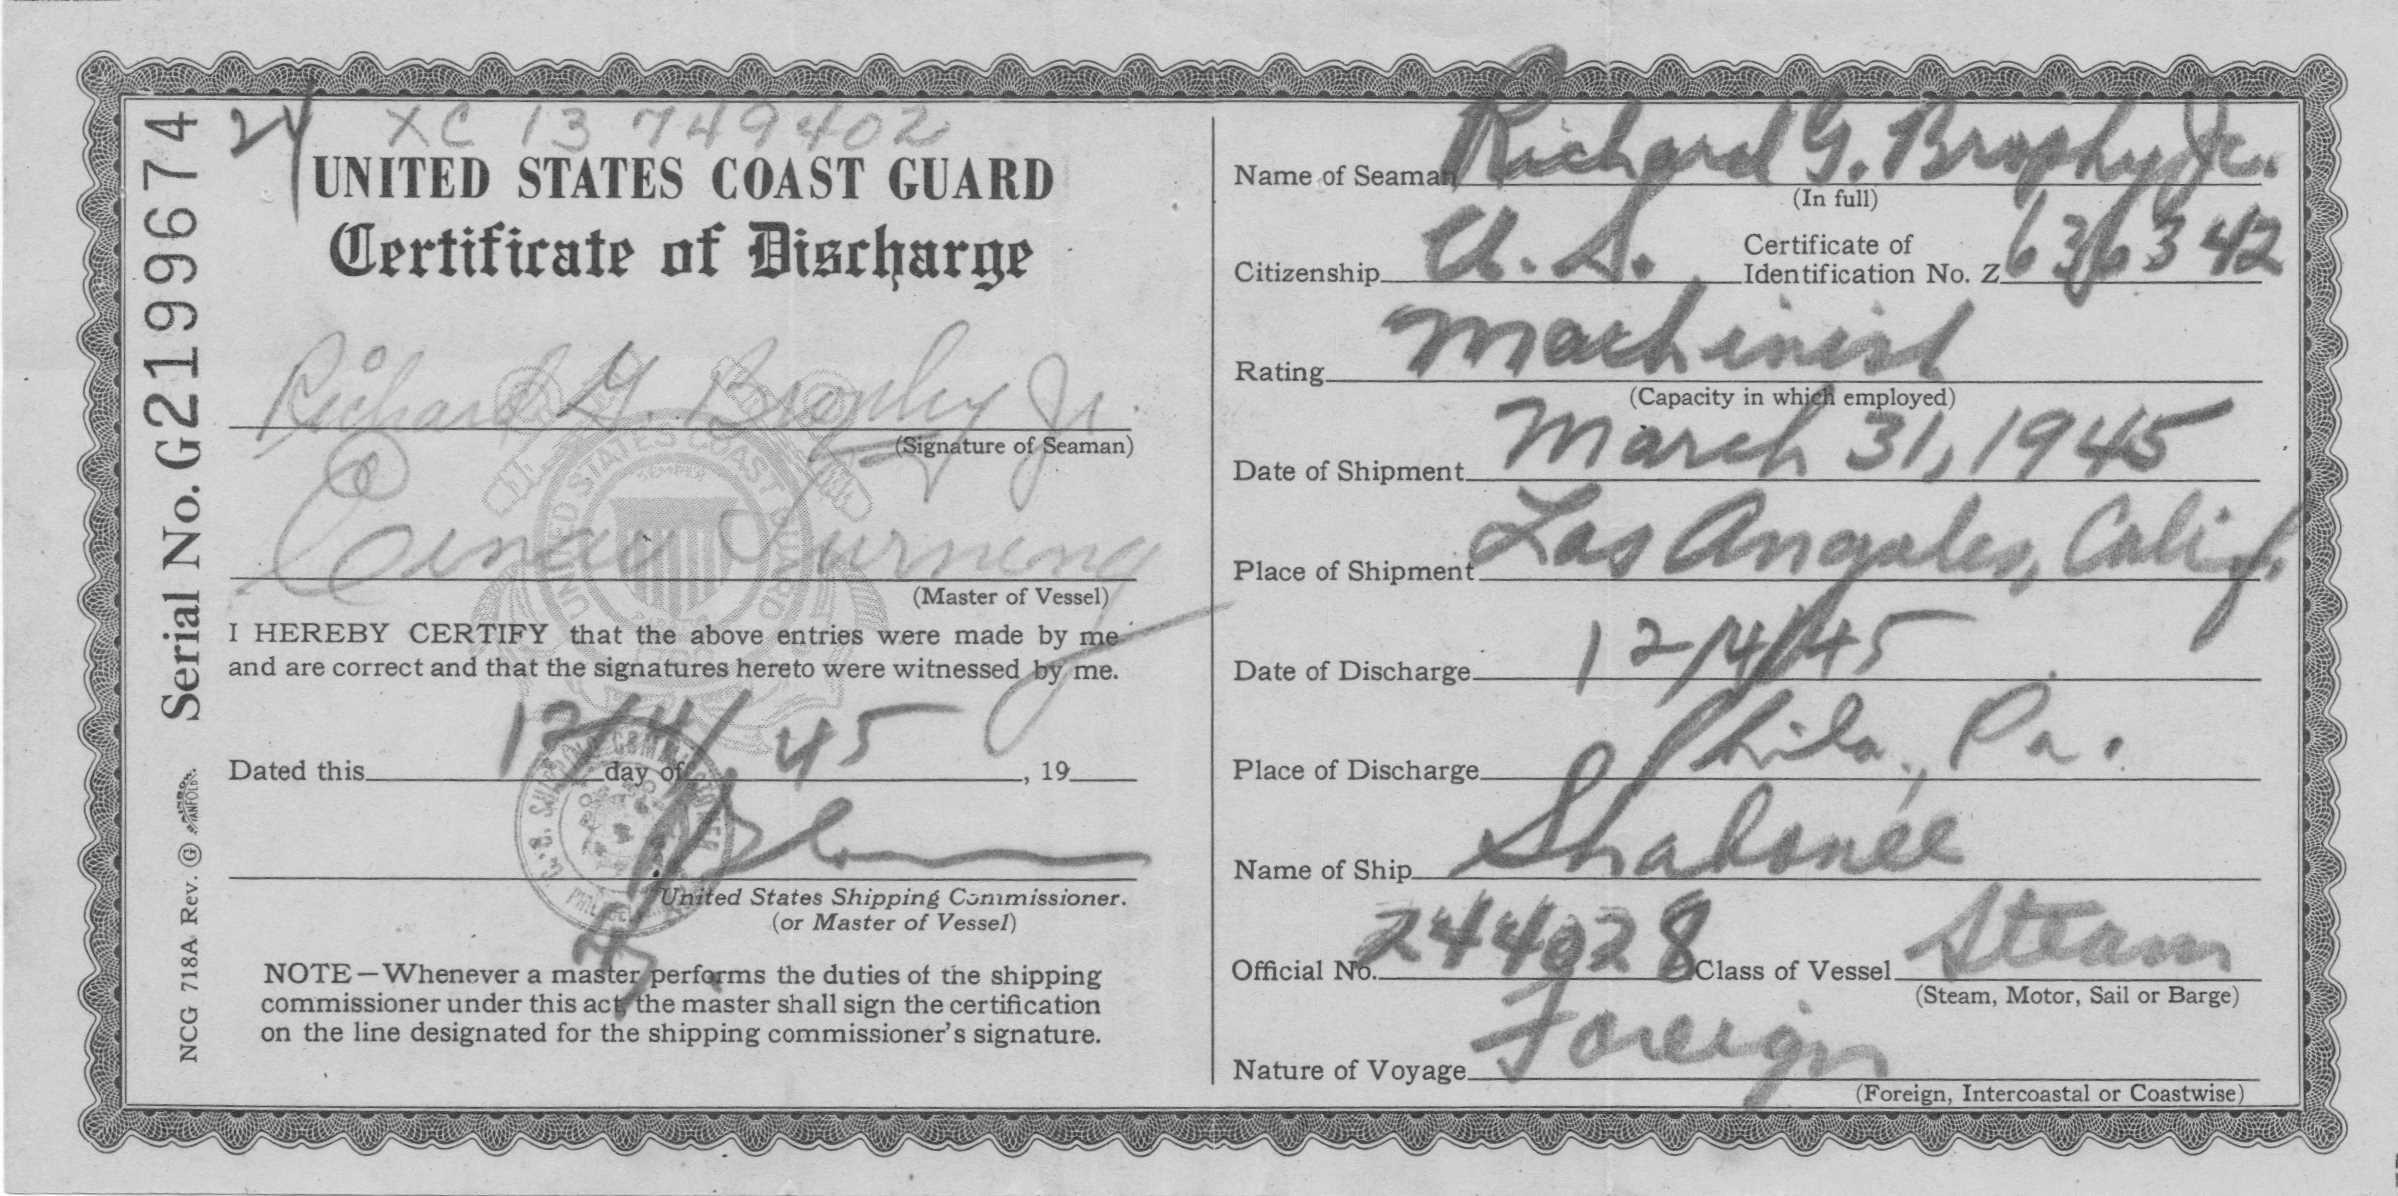 24 XC 13 749402
UNITED STATES COAST GUARD
Certificate of Discharge
Richard G. Brophy Jr.
(Signature of Seaman)
(Master of Vessel)
I HEREBY CERTIFY that the above entries were made by me
and are correct and that the signatures hereto were witnessed by me.
Dated this 12/4/ day of 45, 19
United States Shipping Commissioner.
(or Master of Vessel)
NOTE—Whenever a master performs the duties of the shipping
commissioner under this act, the master shall sign the certification
on the line designated for the shipping commissioner's signature.
Serial No. G2199674
NCG 718A Rev.
UNITED STATES COAST GUARD
Name of Seaman Richard G. Brophy Jr.
(In full)
Citizenship U.S. Certificate of
Identification No. Z 636342
Rating Machinist
(Capacity in which employed)
Date of Shipment March 31, 1945
Place of Shipment Los Angeles, Calif.
Date of Discharge 12/4/45
Place of Discharge Phila., Pa.
Name of Ship Shabonee
Official No. 244028 Class of Vessel Steam
(Steam, Motor, Sail or Barge)
Nature of Voyage Foreign
(Foreign, Intercoastal or Coastwise)